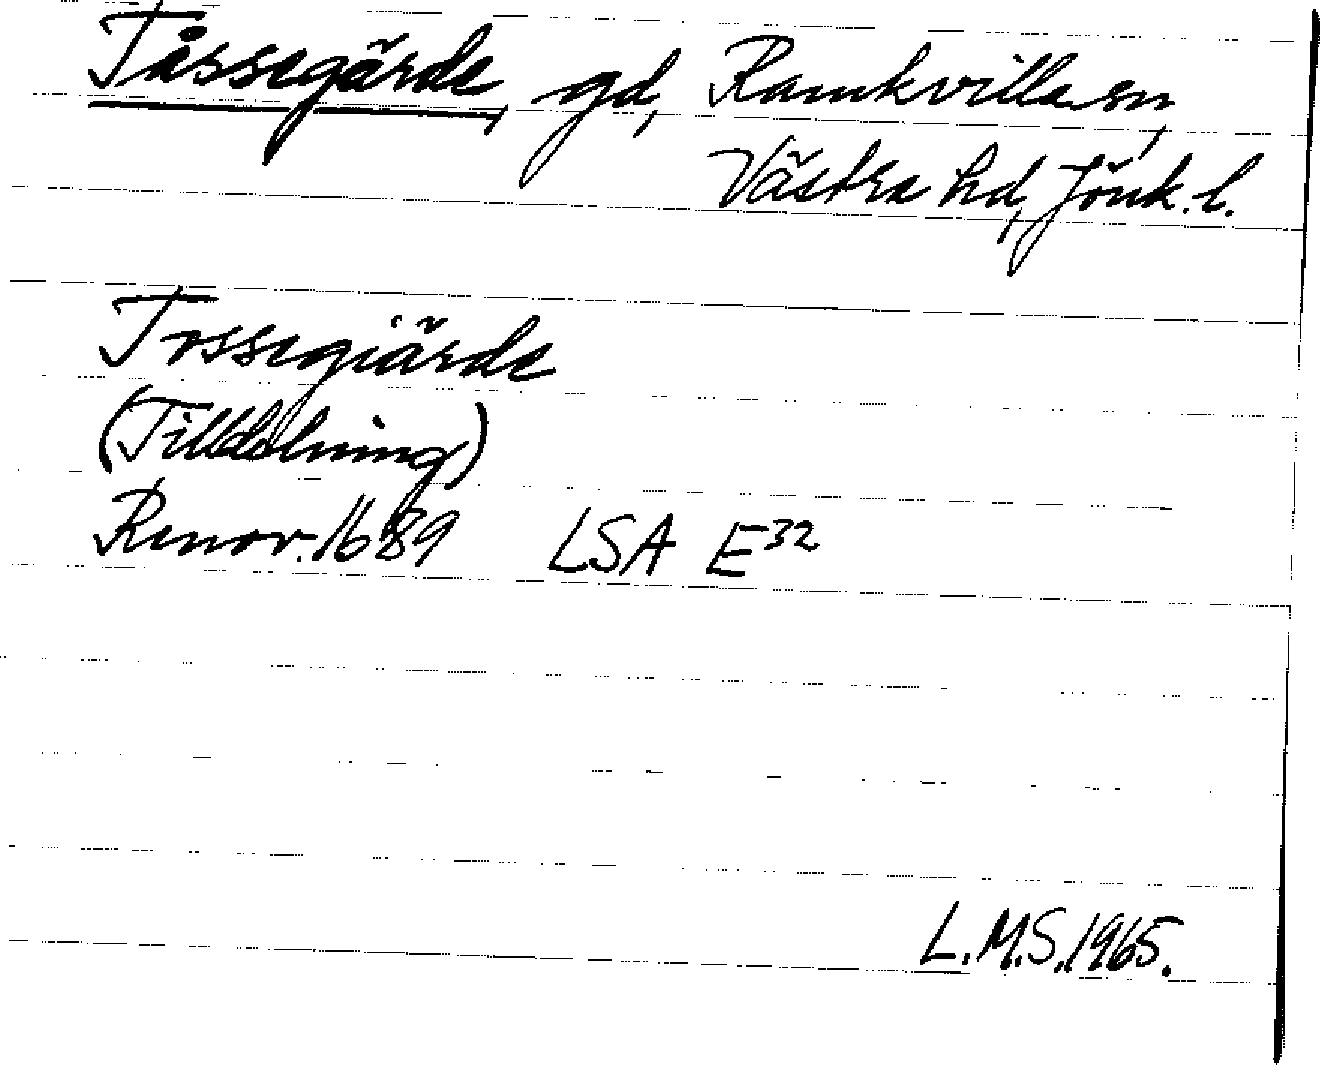 Tåssegärde, gd, Ramkvilla sn,
Västra hd, Jönk. l.
Tossegiärde
(Tilldelning)
Renov. 1689 LSA E32
L.M.S. 1965.